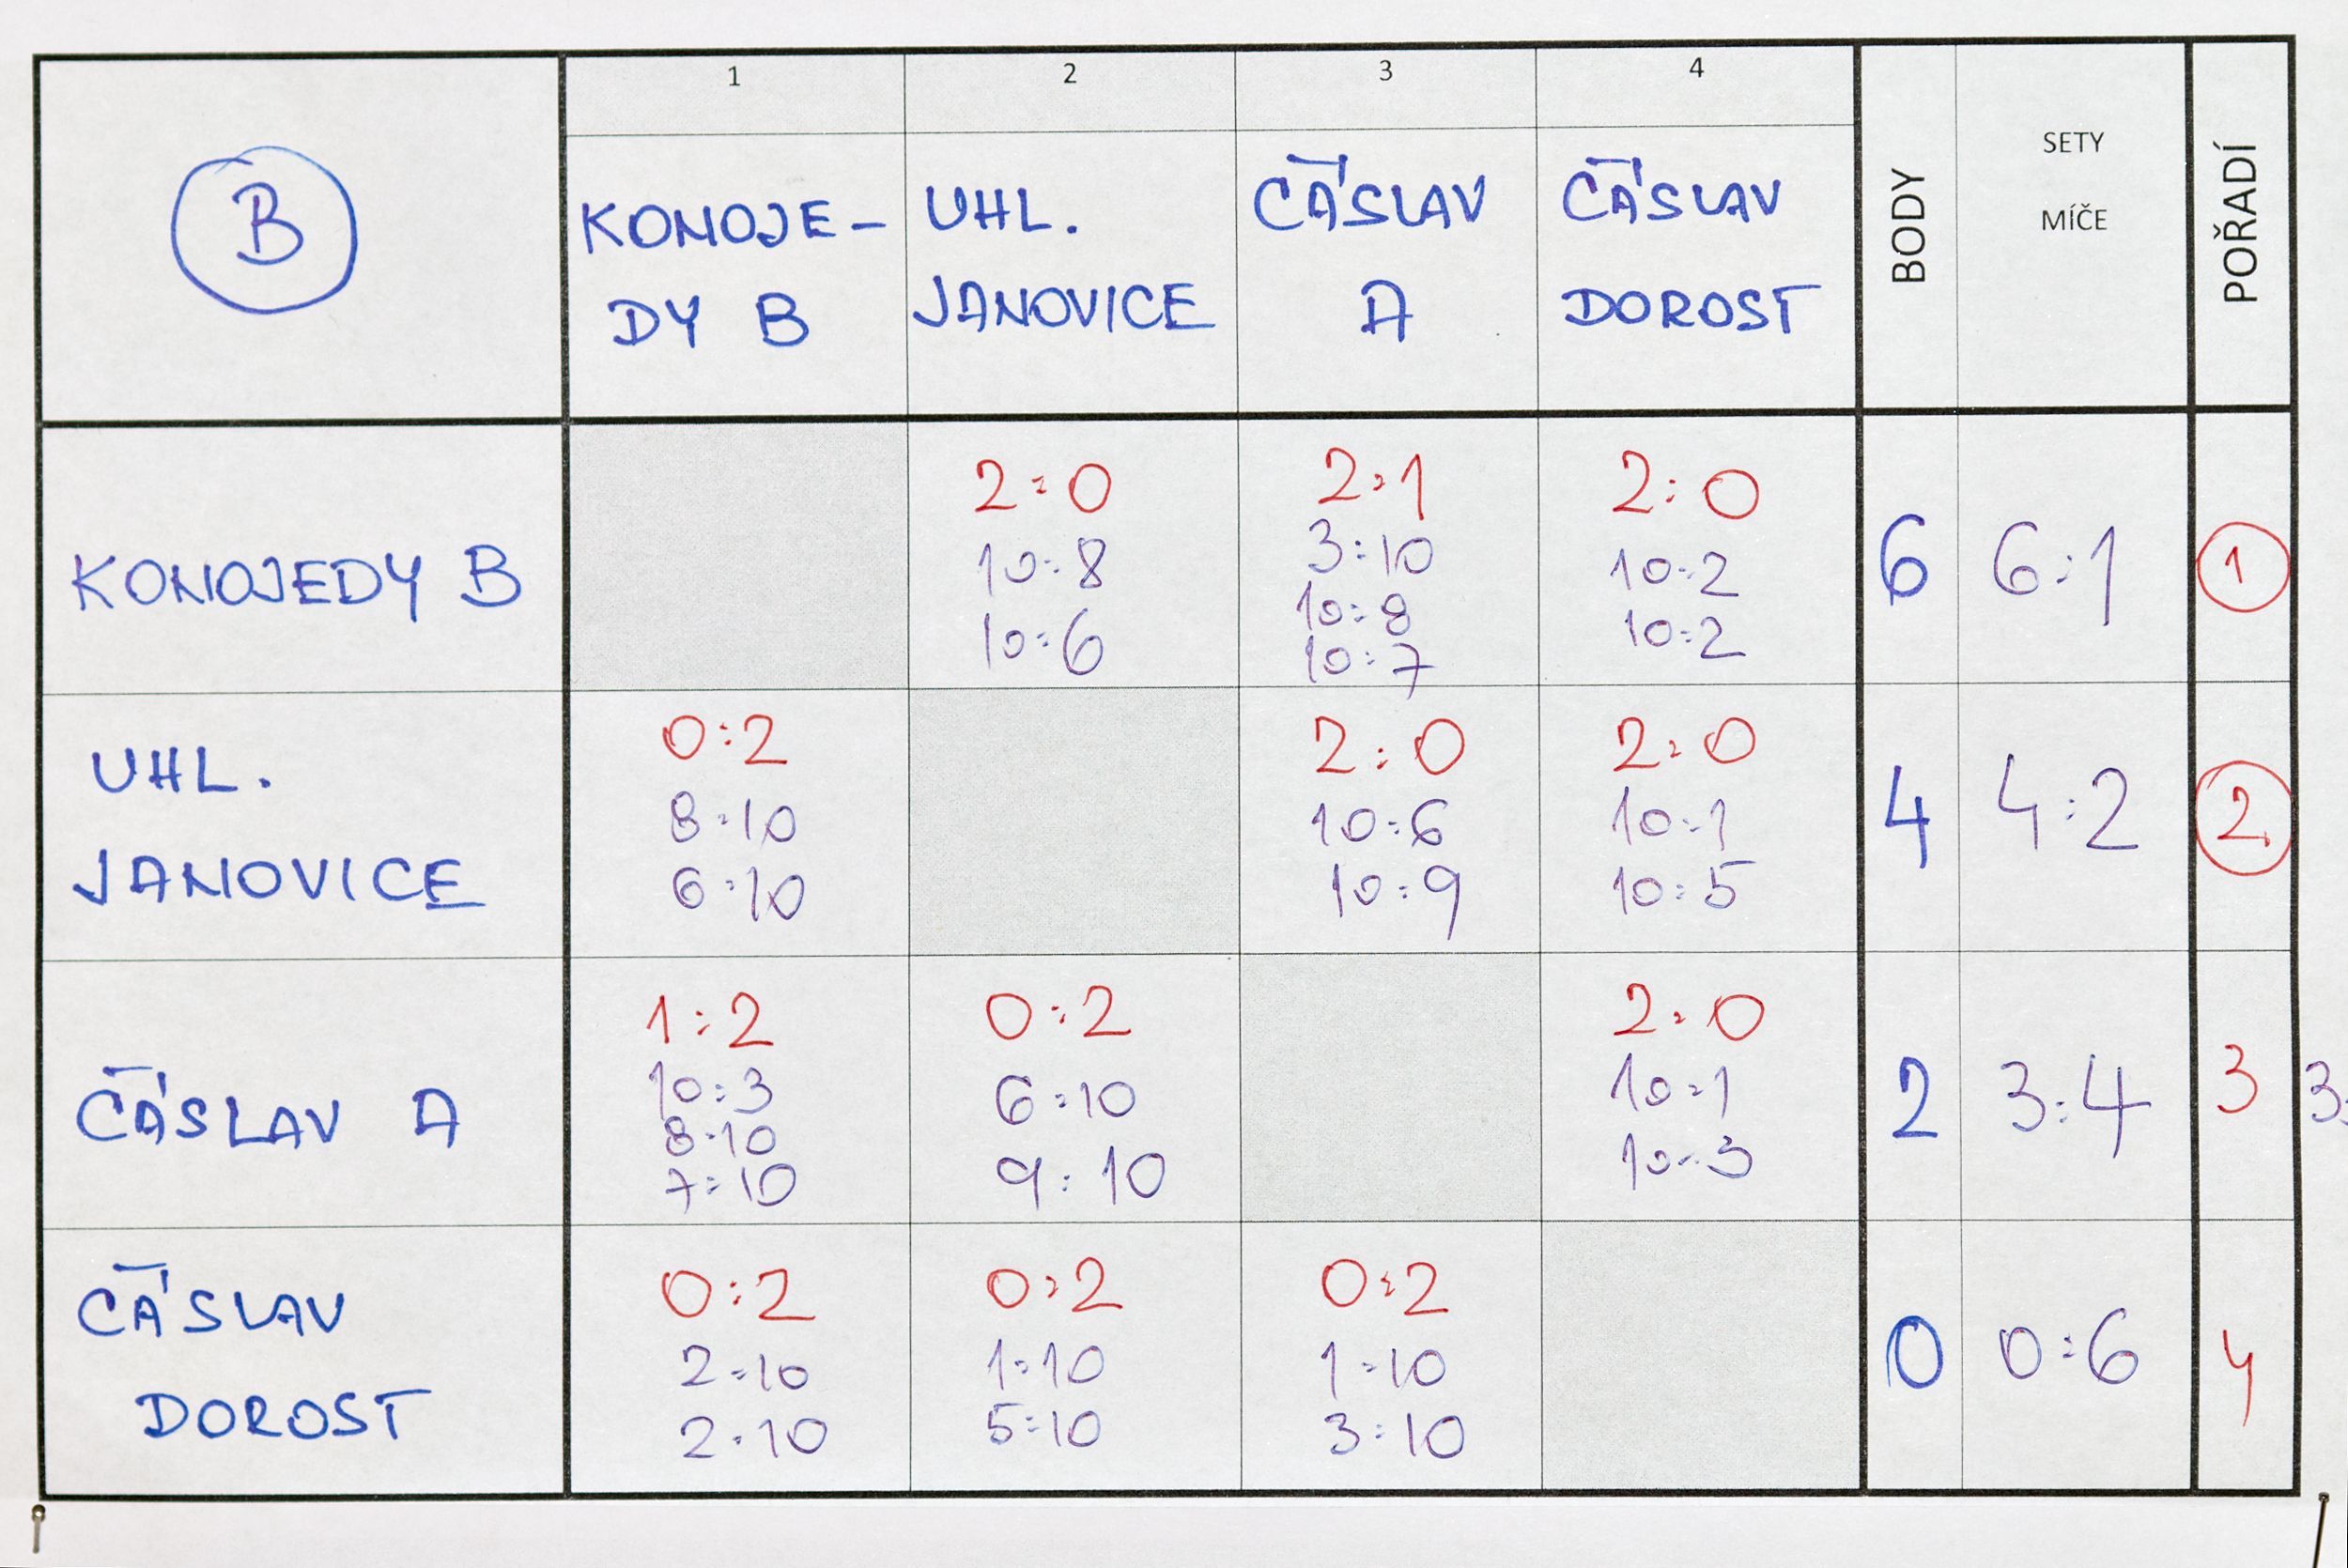 B
1
2
3
4
KONOJE-
DY B
UHL.
JANOVICE
ČÁSLAV
A
ČÁSLAV
DOROST
BODY
SETY
MÍČE
POŘADÍ
KONOJEDY B
2:0
10:8
10:6
2:1
3:10
10:8
10:7
2:0
10:2
10:2
6
6:1
1
UHL.
JANOVICE
0:2
8:10
6:10
2:0
10:6
10:9
2:0
10:1
10:5
4
4:2
2
ČÁSLAV A
1:2
10:3
8:10
7:10
0:2
6:10
9:10
2:0
10:1
10:3
2
3:4
3
3:
ČÁSLAV
DOROST
0:2
2:10
2:10
0:2
1:10
5:10
0:2
1:10
3:10
0
0:6
4